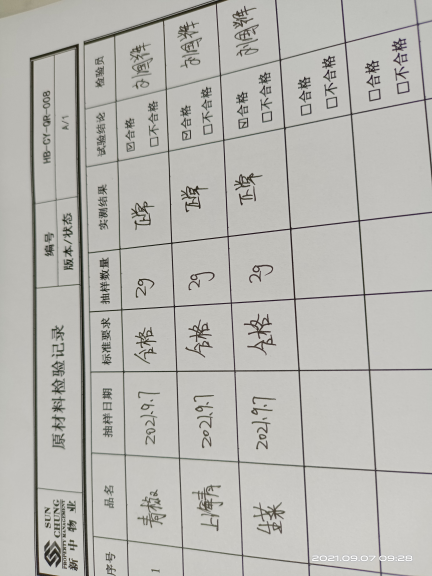 SUN CHUNG
PROPERTY MANAGEMENT
新中物业
原材料检验记录
编号 HB-CY-QR-008
版本/状态 A/1
序号 品名 抽样日期 标准要求 抽样数量 实测结果 试验结论 检验员
1 青椒 2021.9.7 合格 2g 正常 ☑合格 □不合格
上海青 2021.9.7 合格 2g 正常 ☑合格 □不合格
生菜 2021.9.7 合格 2g 正常 ☑合格 □不合格
□合格 □不合格
□合格 □不合格
2021.09.07 09:28